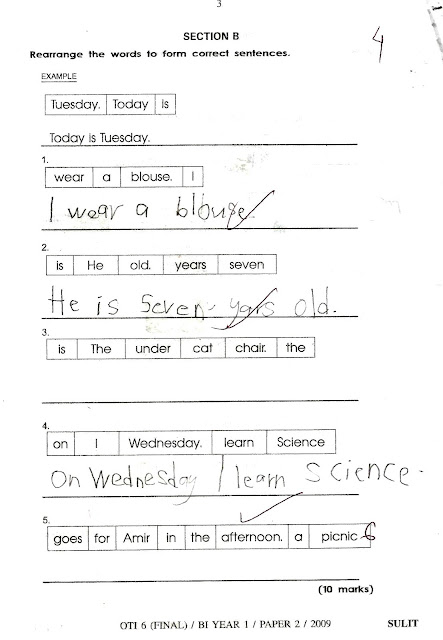 3
SECTION B
4
Rearrange the words to form correct sentences.
EXAMPLE
Tuesday. Today is
Today is Tuesday.
1.
wear a blouse. I
I wear a blouse.
2.
is He old. years seven
He is seven yars old.
3.
is The under cat chair. the
4.
on I Wednesday. learn Science
On Wednesday I learn Science.
5.
goes for Amir in the afternoon. a picnic
(10 marks)
OTI 6 (FINAL) / BI YEAR 1 / PAPER 2 / 2009 SULIT